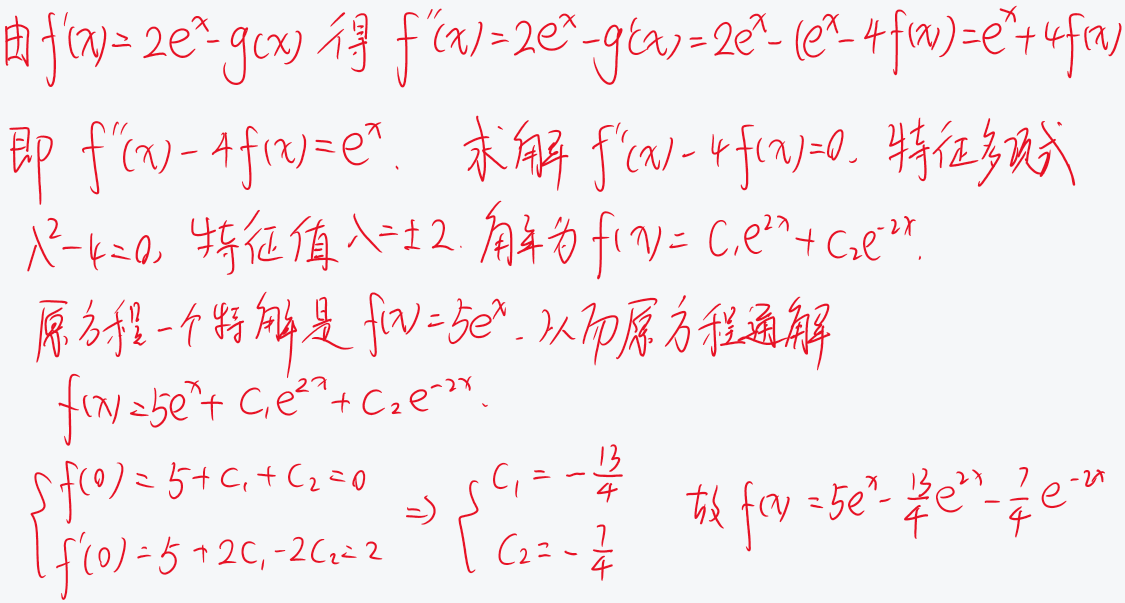 由f'(x)=2e^x-g(x) 得 f''(x)=2e^x-g'(x)=2e^x-(e^x-4f(x))=e^x+4f(x)
即 f''(x)-4f(x)=e^x. 求解 f''(x)-4f(x)=0. 特征多项式
λ²-4=0, 特征值 λ=±2. 解为 f(x)= C₁e^{2x}+C₂e^{-2x}.
原方程一个特解是 f(x)=5e^x. 从而原方程通解
f(x)=5e^x+C₁e^{2x}+C₂e^{-2x}.
{f(0)=5+C₁+C₂=0 ⇒ {C₁=-13/4 故 f(x)=5e^x-13/4e^{2x}-7/4e^{-2x}
f'(0)=5+2C₁-2C₂=2 C₂=-7/4